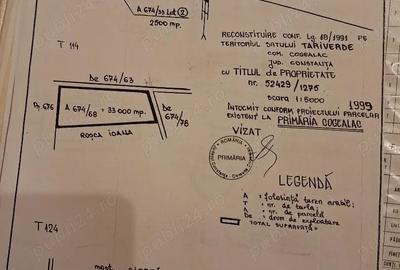 A 674/33 Lot 2
2500 mp.
T 114
De 674/63
A 674/68 = 33 000 mp.
De 674/78
ROȘCA IOANA
T 124
RECONSTITUIRE CONF. Lg. 18/1991 PE
TERITORIUL SATULUI TARIVERDE
COM. COGEALAC
JUD. CONSTANȚA
CU TITLUL de PROPRIETATE
nr. 52429/1275
scara 1:5000
1999
INTOCMIT CONFORM PROIECTULUI PARCELAR
EXISTENT LA PRIMĂRIA COGEALAC
VIZAT
ROMÂNIA
PRIMĂRIA
LEGENDĂ
A : folosință teren arabil;
T : nr. de tarla;
A : nr. de parcelă
De : drum de exploatare
TOTAL SUPRAFAȚĂ